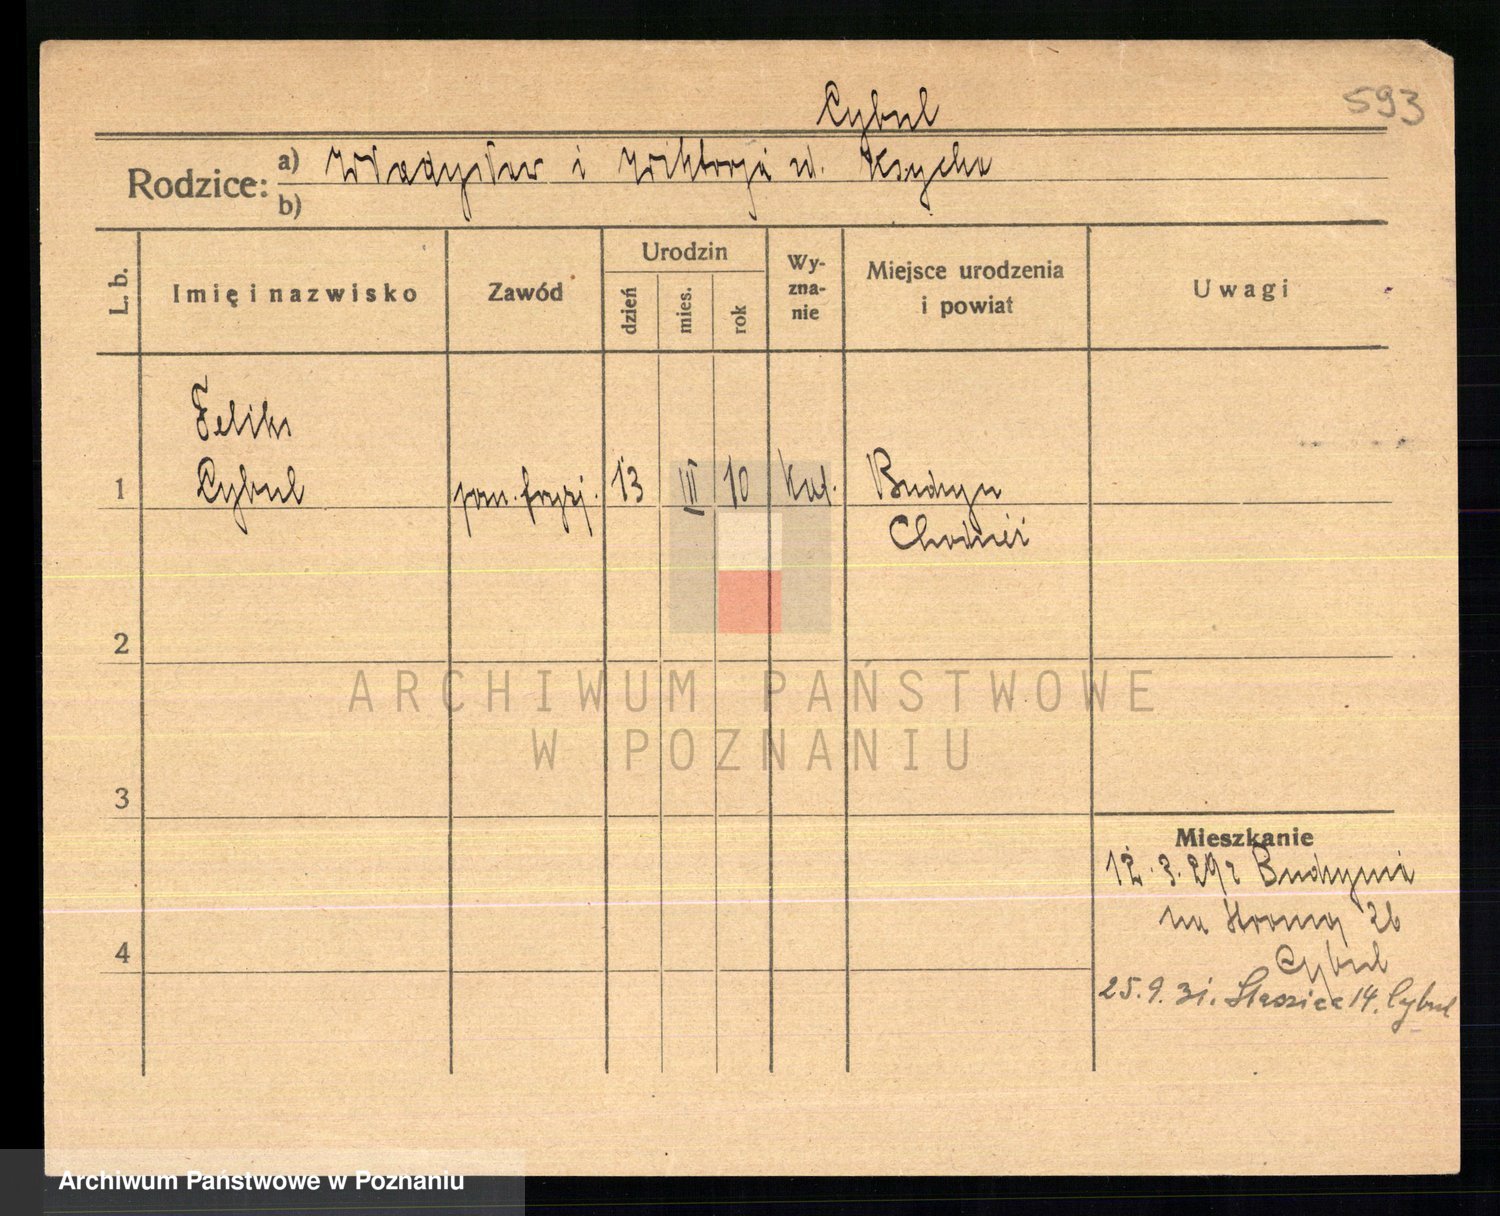 593
Cybul
Rodzice: a) Władysław i Wiktorja ur. Ksycka
b)
L. b. Imię i nazwisko Zawód Urodzin dzień mies. rok Wy-zna-nie Miejsce urodzenia i powiat Uwagi
Feliks
1 Cybul pom. fryzj. 13 III 10 kat. Budzyn
Chodzież
2
ARCHIWUM PAŃSTWOWE
W POZNANIU
3
Mieszkanie
12.3.29r Budzynia
na 26
4 Cybul
25.9.31. Staszica 14. Cybul
Archiwum Państwowe w Poznaniu